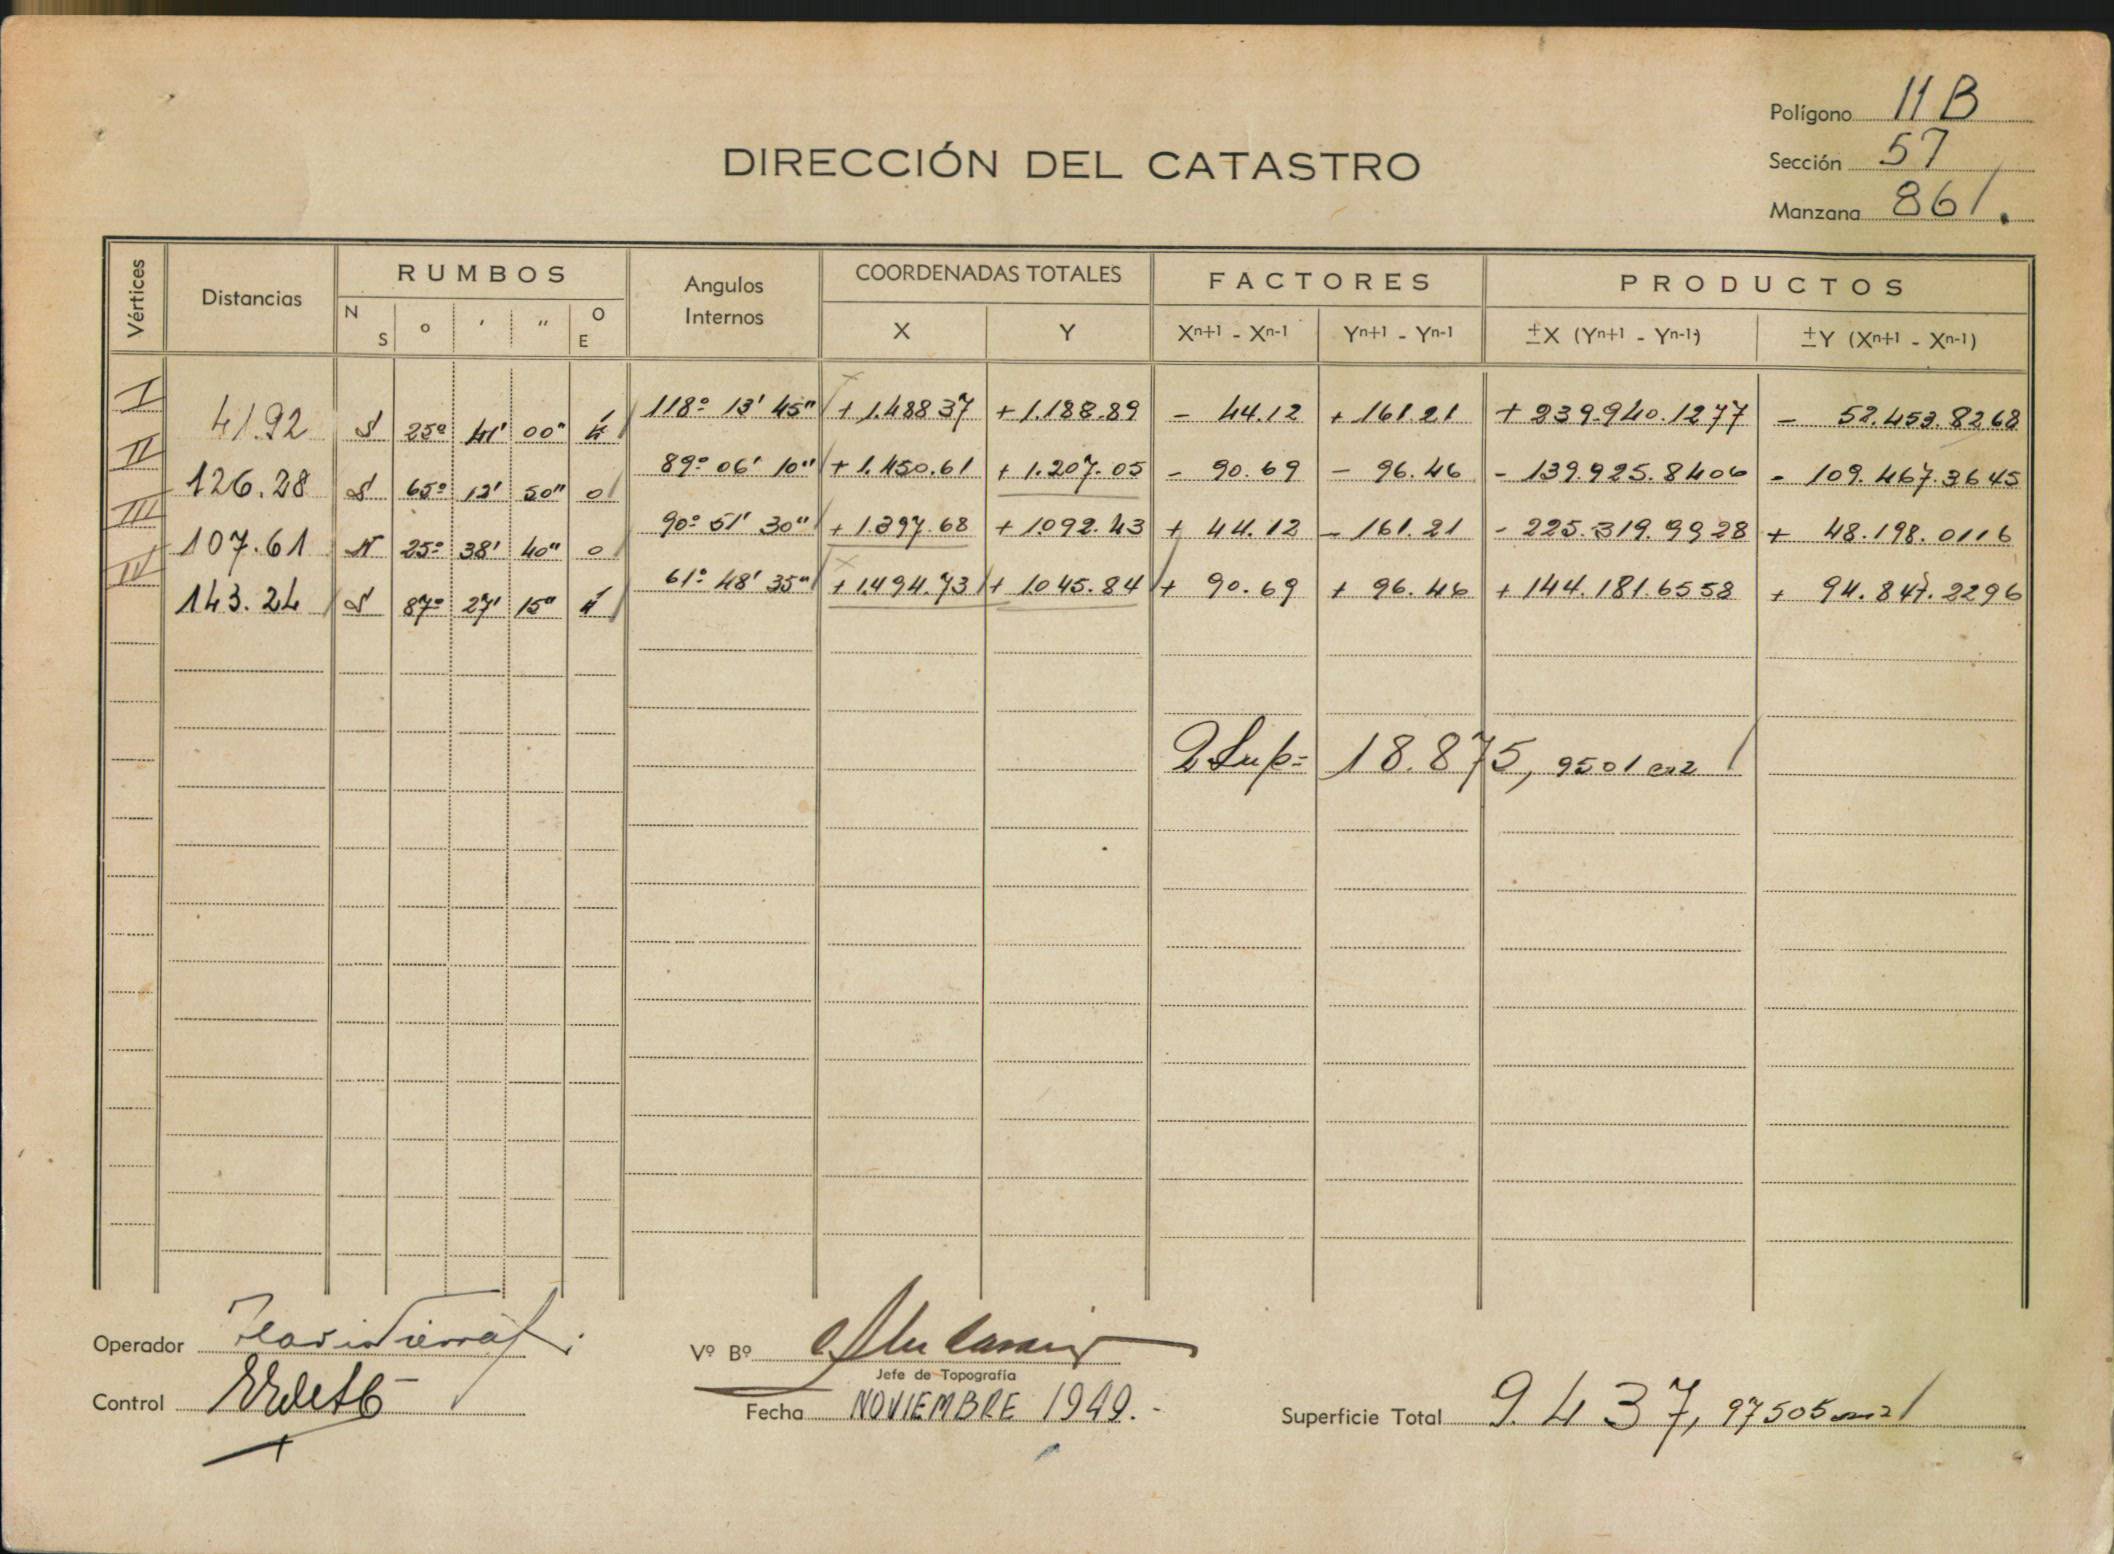 Polígono 11 B
Sección 57
Manzana 861.
DIRECCIÓN DEL CATASTRO
Vértices Distancias RUMBOS Angulos Internos COORDENADAS TOTALES FACTORES PRODUCTOS
N S o ' " O E X Y Xn+1 - Xn-1 Yn+1 - Yn-1 ±X (Yn+1 - Yn-1) ±Y (Xn+1 - Xn-1)
I 118º 13' 45" + 1.488 37 + 1.188.89 - 44.12 + 161.21 + 239.940.1277 - 52.453.8268
41.92 S 25º 41' 00" E
II 89º 06' 10" + 1.450.61 + 1.207.05 - 90.69 - 96.46 - 139.925.8406 - 109.467.3645
126.28 S 65º 12' 50" O
III 90º 51' 30" + 1.397.68 + 1092.43 + 44.12 - 161.21 - 225.319.9928 + 48.198.0116
107.61 N 25º 38' 40" O
IV 61º 48' 35" + 1.494.73 + 1045.84 + 90.69 + 96.46 + 144.181.6558 + 94.847.2296
143.24 S 87º 27' 15" E
2 Sup= 18.875, 9501 m2
Operador
Vº Bº
Jefe de Topografía
Control
Fecha NOVIEMBRE 1949.-
Superficie Total 9.437, 97505 m2